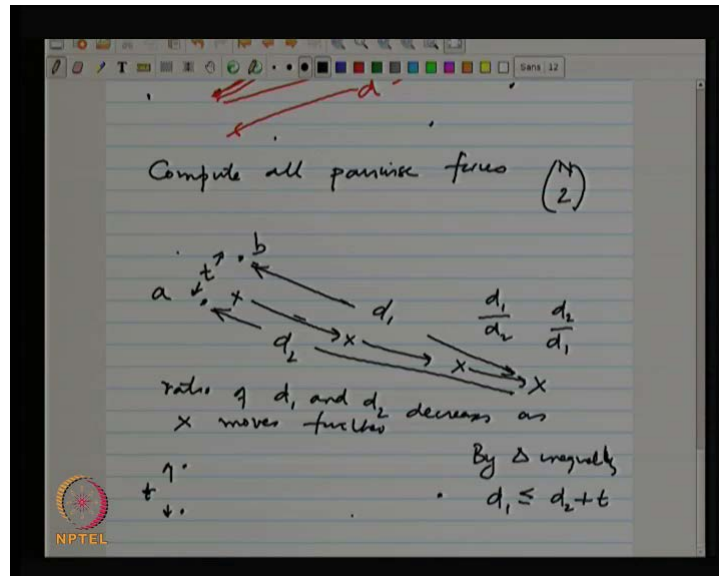 T Sans 12
d
Compute all pairwise forces (N 2)
b
t
a
x
d₁
d₁/d₂ d₂/d₁
d₂
x
x
x
ratio of d₁ and d₂ decreases as
x moves further
By Δ inequality
t
d₁ ≤ d₂ + t
NPTEL